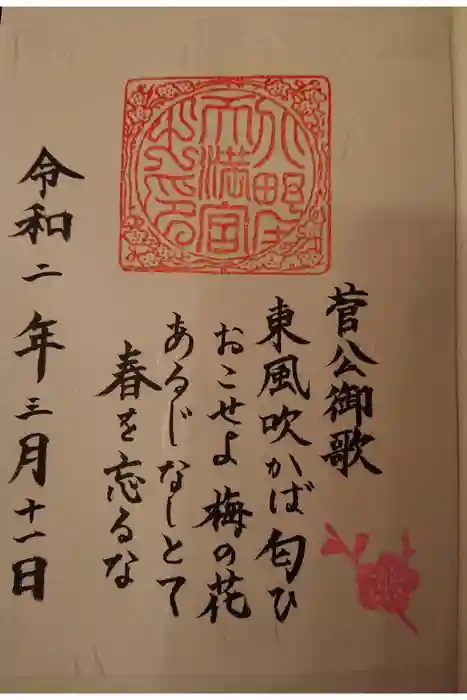 天満宮
之印
菅公御歌
東風吹かば匂ひ
おこせよ梅の花
あるじなしとて
春を忘るな
令和二年三月十一日